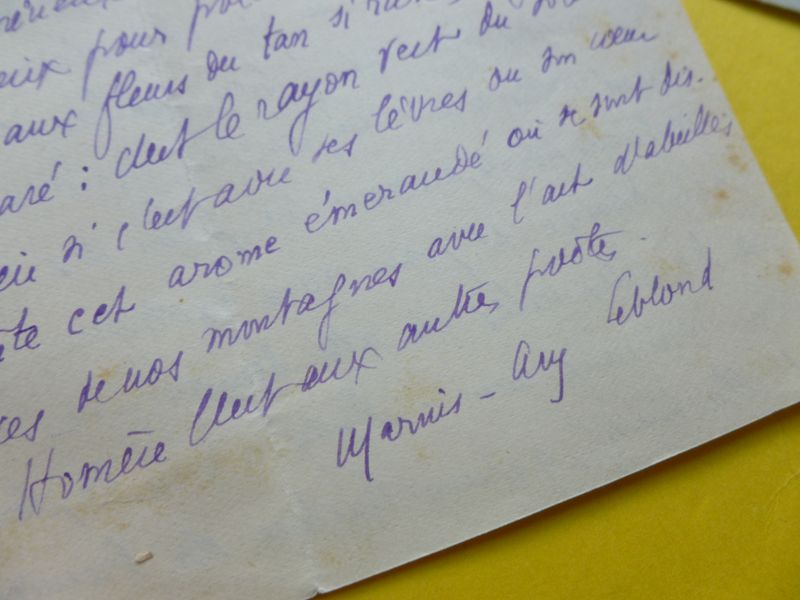 pour
aux fleurs du tan si
: c'est le rayon vert du
si c'est avec ses lèvres ou son cœur
cet arome émeraudé où se sont dis-
de nos montagnes avec l'art d'abeilles
Homère c'est aux autres poètes.
Marius-Ary Leblond